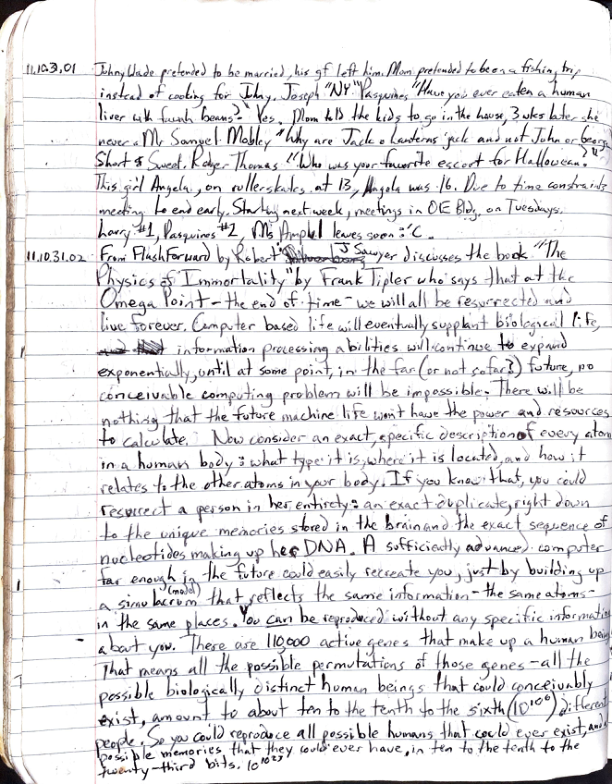 11.10.3.01 Johny Wade pretended to be married, his gf left him. Mom pretended to be on a fishin, trip
instead of cooking for Johny. Joseph "NY" Pasquines "Have you ever eaten a human
liver with fawah beans?" Yes. Mom told the kids to go in the house, 3 wks later she
never a Mr Samuel Mobley "Why are Jack o Lanterns jack and not John or George
Short & Sweet. Rodger Thomas "Who was your favorite escort for Halloween?"
This girl Angela, on rollerskates at 13, Angela was 16. Due to time constraints
meeting to end early. Starting next week, meetings in OE Bldg. on Tuesdays.
Larry #1, Pasquines #2, Ms Ampbel leaves soon :'C.
11.10.31.02 From FlashForward by Robert J Sawyer discusses the book "The
Physics of Immortality" by Frank Tipler who says that at the
Omega Point - the end of time - we will all be resurrected and
live forever. Computer based life will eventually supplant biological life,
information processing abilities will continue to expand
exponentially, until at some point, in the far (or not so far?) future, no
conceivable computing problem will be impossible. There will be
nothing that the future machine life won't have the power and resources
to calculate. Now consider an exact, specific description of every atom
in a human body: what type it is, where it is located, and how it
relates to the other atoms in your body. If you know that, you could
resurrect a person in her entirety: an exact duplicate, right down
to the unique memories stored in the brain and the exact sequence of
nucleotides making up her DNA. A sufficiently advanced computer
far enough in the future could easily recreate you, just by building up
a simulacrum (model) that reflects the same information - the same atoms -
in the same places. You can be reproduced without any specific information
about you. There are 110,000 active genes that make up a human being
That means all the possible permutations of those genes - all the
possible biologically distinct human beings that could conceivably
exist, amount to about ten to the tenth to the sixth (10^10^6) different
people. So you could reproduce all possible humans that could ever exist, and
possible memories that they could ever have, in ten to the tenth to the
twenty-third bits. 10^10^23